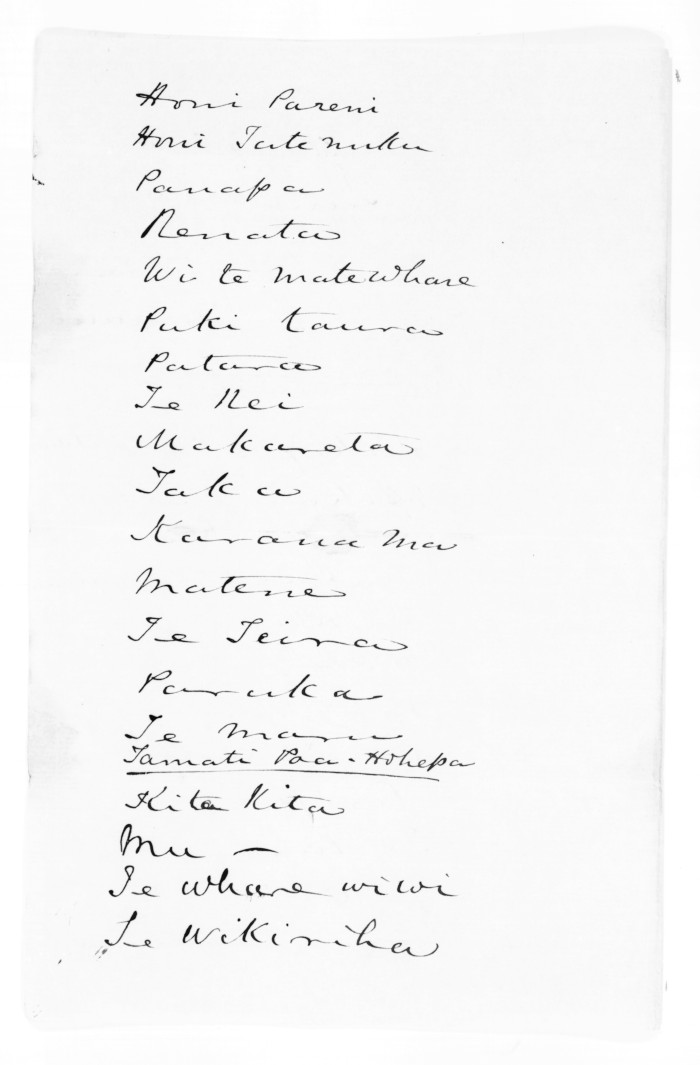 Honi Pareni
Honi Tatenuku
Panapa
Renata
Wi te matewhare
Puki taura
Patara
Te Rei
Makareta
Taka
Karana Ma
Matene
Te Teira
Paruka
Te maru
Tamati Poa - Hohepa
Kita Kita
Mu —
Te whare wiwi
Te Wikiriha